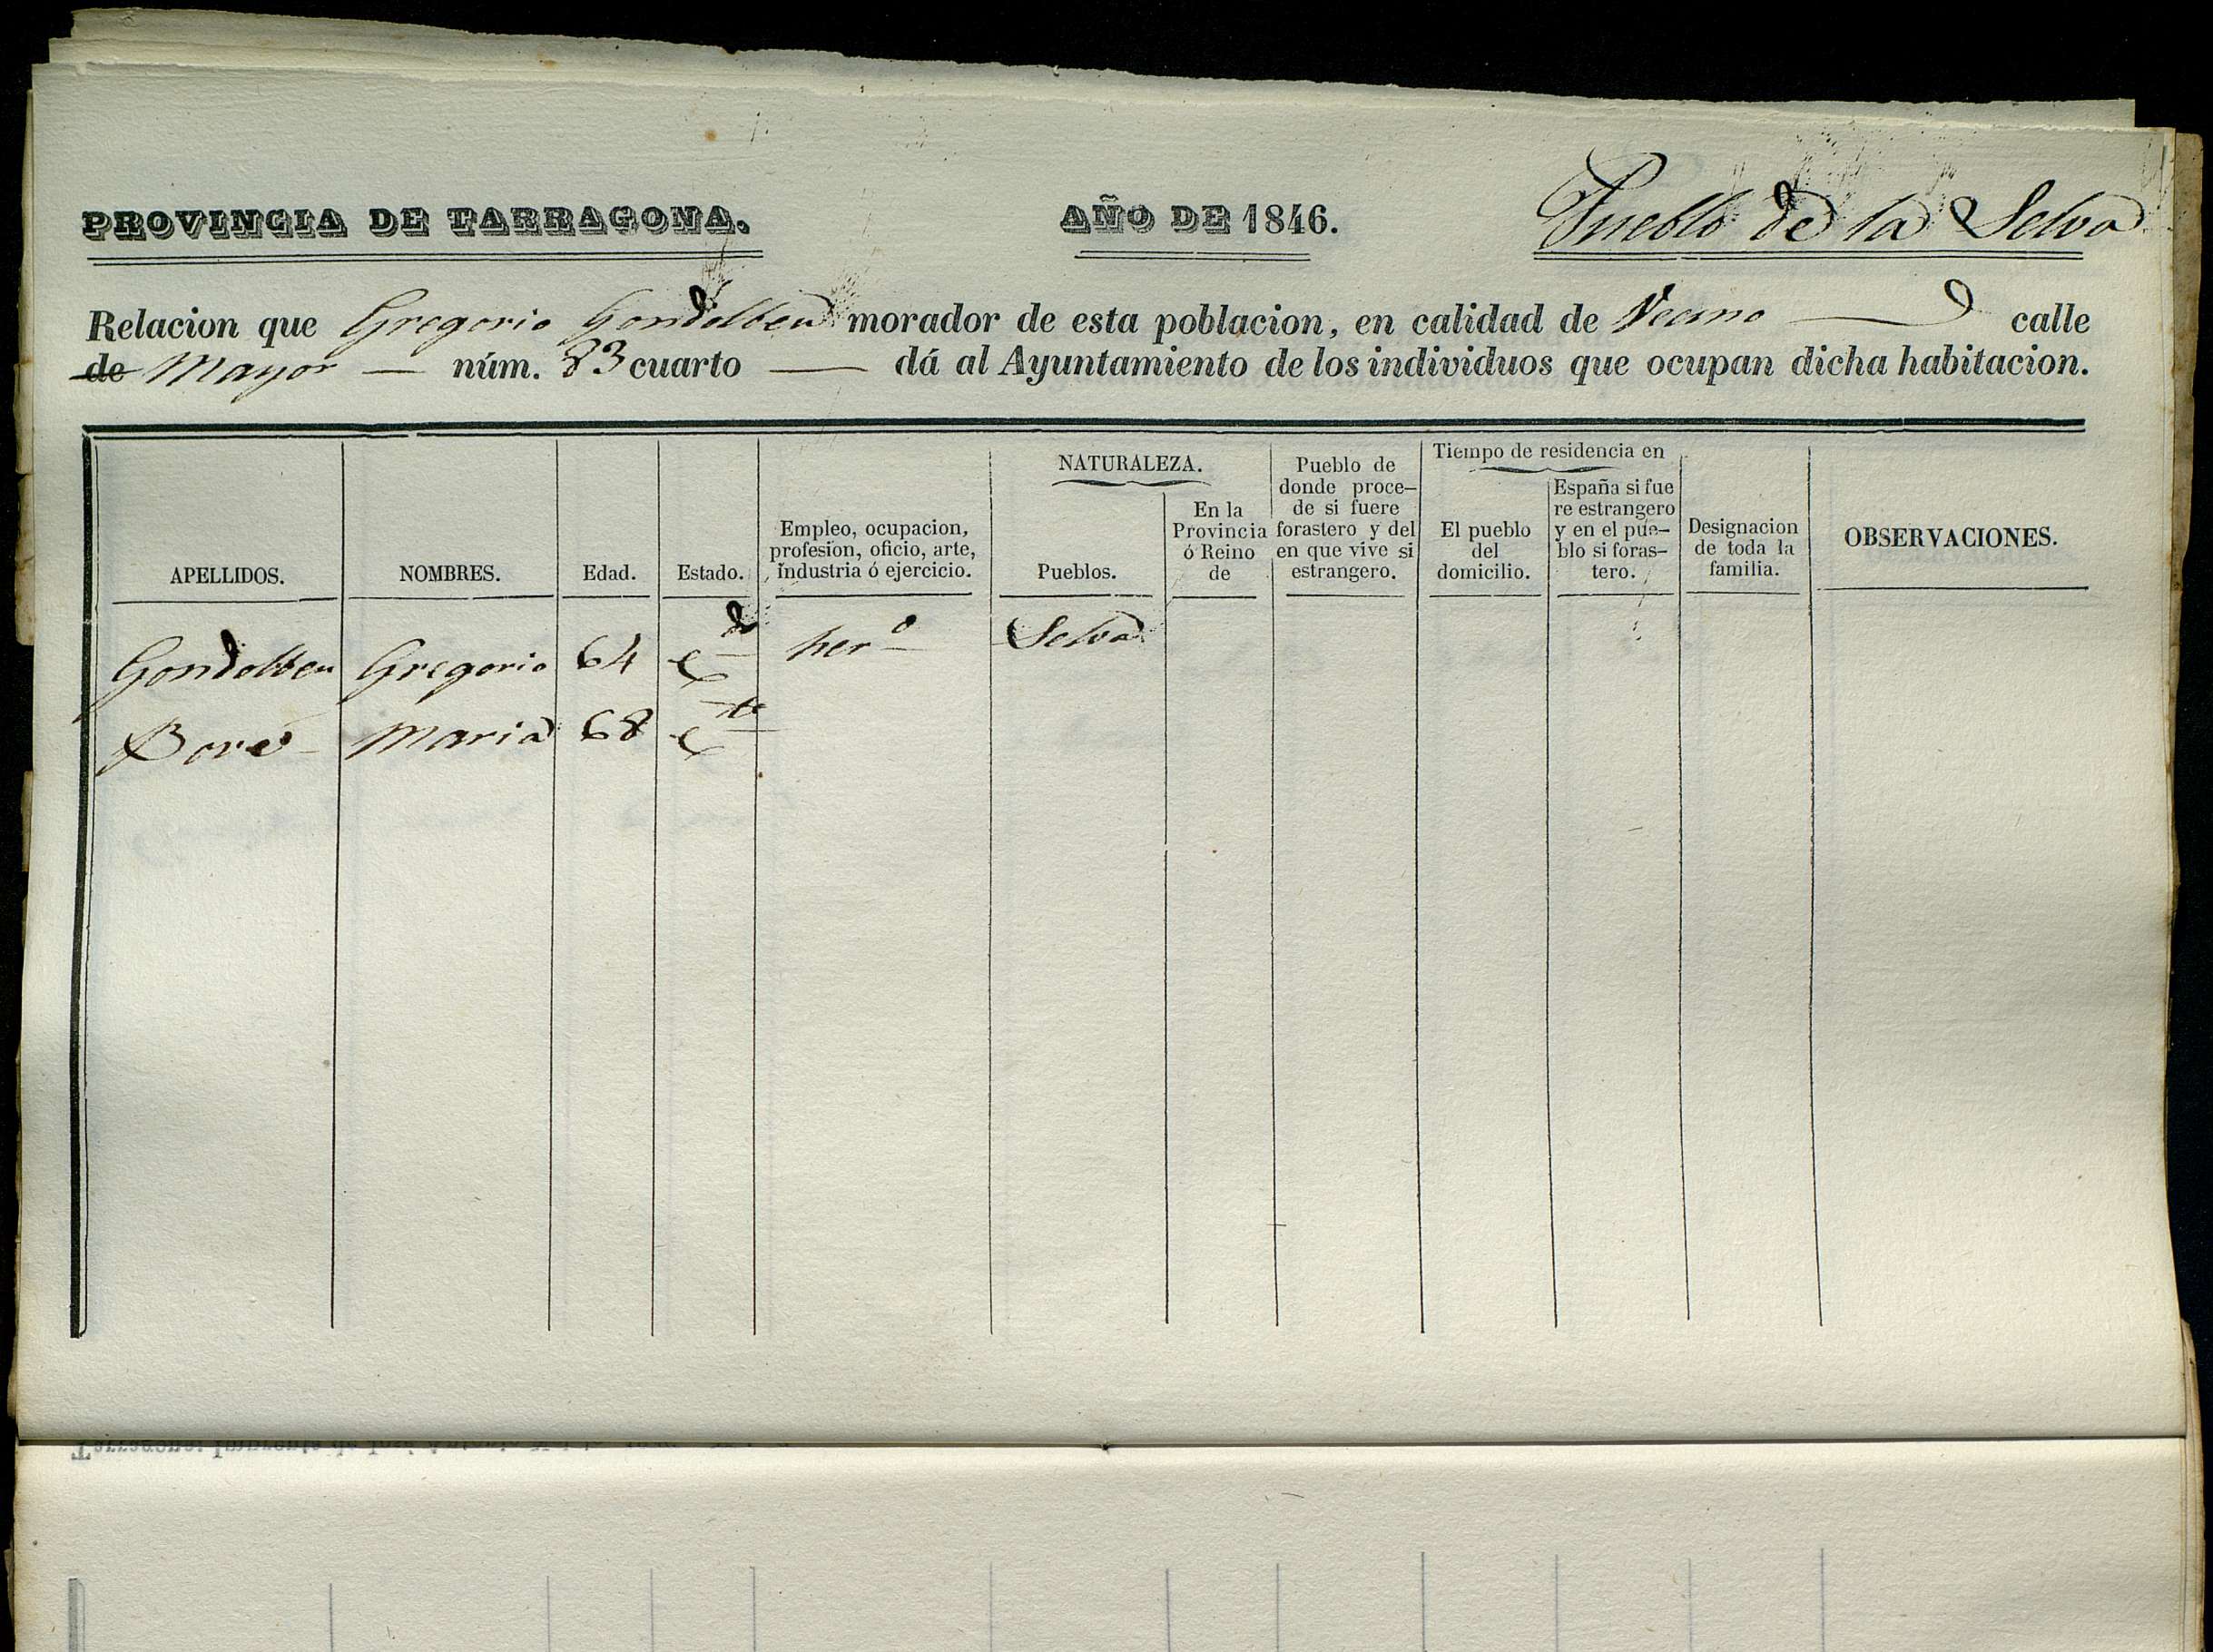 PROVINCIA DE TARRAGONA. AÑO DE 1846. Pueblo de la Selva
Relacion que Gregorio Gondolbeu morador de esta poblacion, en calidad de Vecino calle
de Mayor — núm. 83 cuarto — dá al Ayuntamiento de los individuos que ocupan dicha habitacion.
APELLIDOS.
NOMBRES.
Edad.
Estado.
Empleo, ocupacion,
profesion, oficio, arte,
industria ó ejercicio.
NATURALEZA.
Pueblos.
En la
Provincia
ó Reino
de
Pueblo de
donde proce-
de si fuere
forastero y del
en que vive si
estrangero.
Tiempo de residencia en
El pueblo
del
domicilio.
España si fue
re estrangero
y en el pue-
blo si foras-
tero.
Designacion
de toda la
familia.
OBSERVACIONES.
Gondolbeu Gregorio 64 C.do her.o Selva
Boré Maria 68 C.da